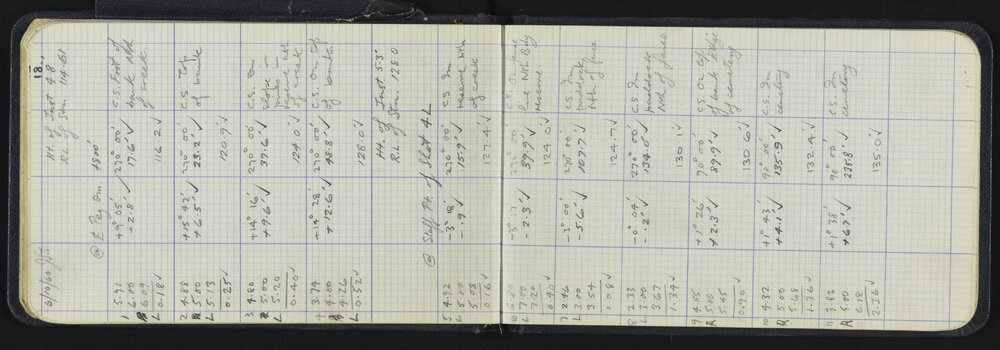 18.
6/10/60
Ht. of Inst 4.8
R.L. of Stn. 114.61
@ ₤ Peg Om. 1800
1 5.91 +9° 05' 270° 00' C.S. Foot of
6.00 +2.8 ✓ 17.6 ✓ bank Nth
L 6.09 of creek.
0.18 ✓ 116.2 ✓
2 4.88 +15° 42' 270° 00' C.S. Top
L 5.00 +6.5 ✓ 23.2 ✓ of bank
5.13
0.25 ✓ 120.9 ✓
3 4.80 +14° 16' 270° 00' C.S. On
5.00 +9.6 ✓ 37.6 ✓ slope in
L 5.20 Nth
0.40 ✓ 124.0 ✓ of creek
4 3.74 +14° 28' 270° 00' C.S. On top
4.00 +12.6 ✓ 48.8 ✓ of bank.
L 4.26
0.52 ✓ 128.0 ✓
Ht. of Inst 5.3'
R.L. of Stn. 128.0
@ Staff Pt. of Shot 4 L
5 4.92 -3° 18' 270° 00' C.S. In
L 5.00 -.9 ✓ 15.9 ✓ reserve Nth
5.08 of creek
0.16 ✓ 127.4 ✓
6 6.80 -3° 17' 270° 00' C.S. In fence
L 7.00 -2.3 ✓ 39.9 ✓ line Nth Bdy
7.20 reserve
0.40 124.0 ✓
7 2.46 -3° 00' 270° 00' C.S. In
L 3.00 -5.6 ✓ 107.7 ✓ paddock
3.54 Nth of fence
1.08 ✓ 124.7 ✓
8 2.33 -0° 04' 270° 00' C.S. In
L 3.00 -.2 ✓ 134.0 ✓ paddock
3.67 Nth of fence
1.34 ✓ 130.1 ✓
9 4.55 +1° 26' 90° 00' C.S. On top
R 5.00 +2.3 ✓ 89.9 ✓ of bank Edge
5.45 of cemetery
0.90 ✓ 130.6 ✓
10 4.32 +1° 43' 90° 00' C.S. In
R 5.00 +4.1 ✓ 135.9 ✓ cemetery
5.68
1.36 ✓ 132.4 ✓
11 3.82 +1° 38' 90° 00' C.S. In
R 5.00 +6.7 ✓ 235.8 ✓ cemetery
6.18
2.36 ✓ 135.0 ✓